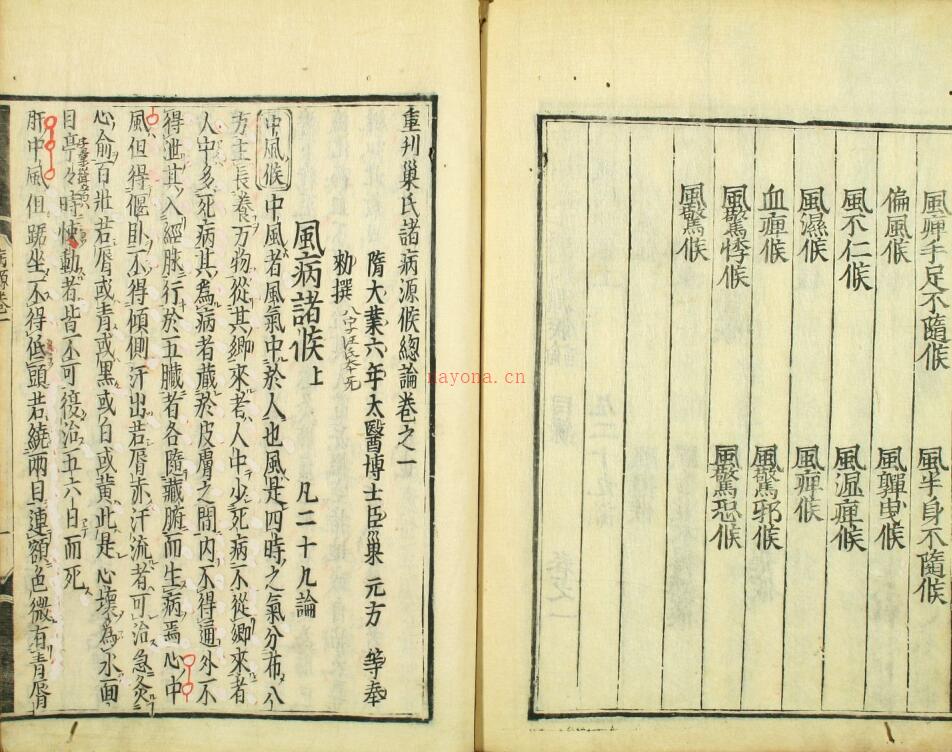 風痺手足不隨候 風半身不隨候
偏風候 風嚲曳候
風不仁候 風湿痺候
風濕候 風痺候
血痺候 風驚邪候
風驚悸候 風驚恐候
風驚候
重刋巢氏諸病源候總論卷之一
隋大業六年太醫博士臣巢元方 等奉
勑撰 八字汪氏本无
風病諸候上 凡二十九論
中風候 中風者風氣中於人也風是四時之氣分布八
方主長養万物從其鄉來者人中少死病不從鄉來者
人中多死病其為病者藏於皮膚之間內不得通外不
得泄其入經脉行於五臟者各隨藏腑而生病焉心中
風但得偃卧不得傾側汗出若脣赤汗流者可治急灸
心俞百壯若脣或青或黑或白或黃此是心壞為水面
目亭々時悚動者皆不可復治五六日而死
肝中風但踞坐不得低頭若繞兩目連額色微有青脣
病源卷一
nayona.cn